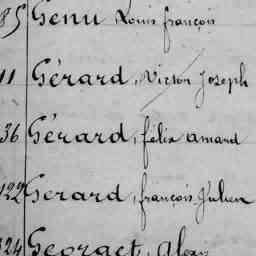 85 Genu Louis françois
11 Gérard, Victor Joseph
36 Gérard, félix amand
122 Gerard, françois Julien
124 Georget, Alexis